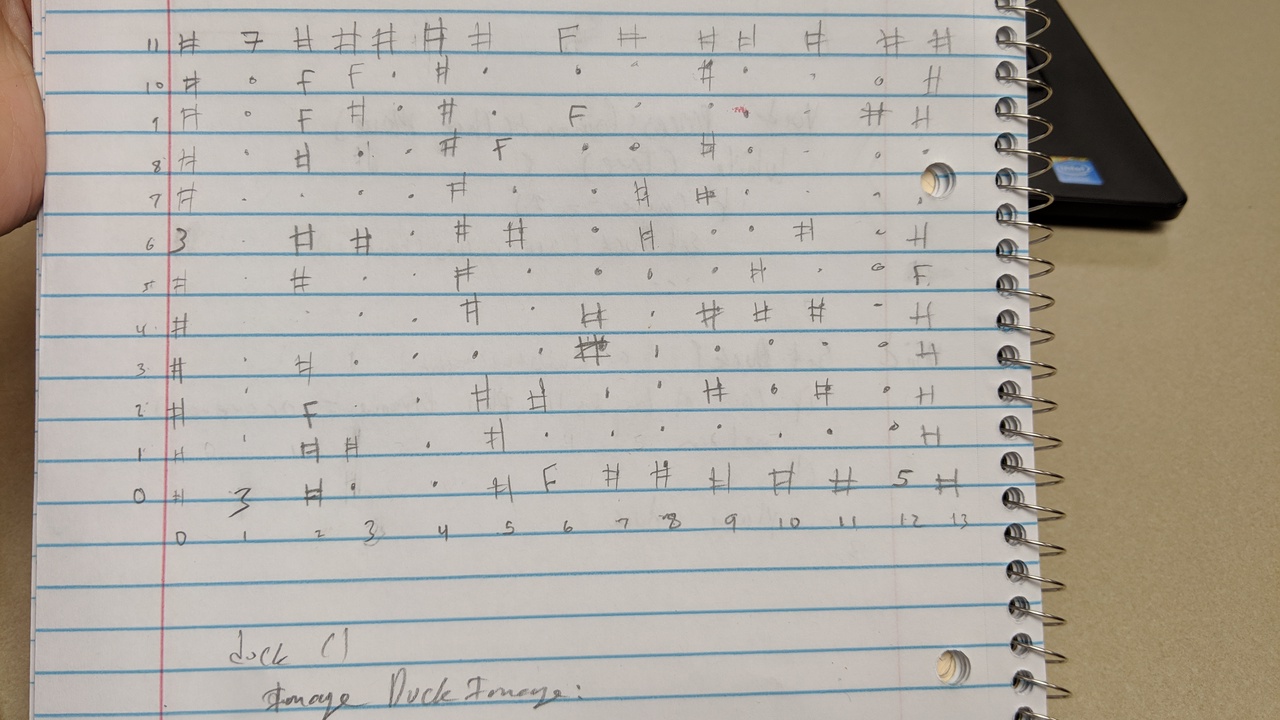 11 # 7 # # # # # F # # # # # #
10 # . F F . # . . . # . . . #
9 # . F # . # . F . . . # #
8 # . # . . # F . . # . . . .
7 # . . . . # . . # # . . . .
6 3 . # # . # # . # . . # . #
5 # # . . # . . . . # . . F
4 # . . . # . # . # # # . #
3 # . # . . . . # . . . . . #
2 # . F . . # # . . # . # . #
1 # . # # . # . . . . . . . #
0 # 3 # . . # F # # # # # 5 #
0 1 2 3 4 5 6 7 8 9 10 11 12 13
duck ()
Image DuckImage;
intel